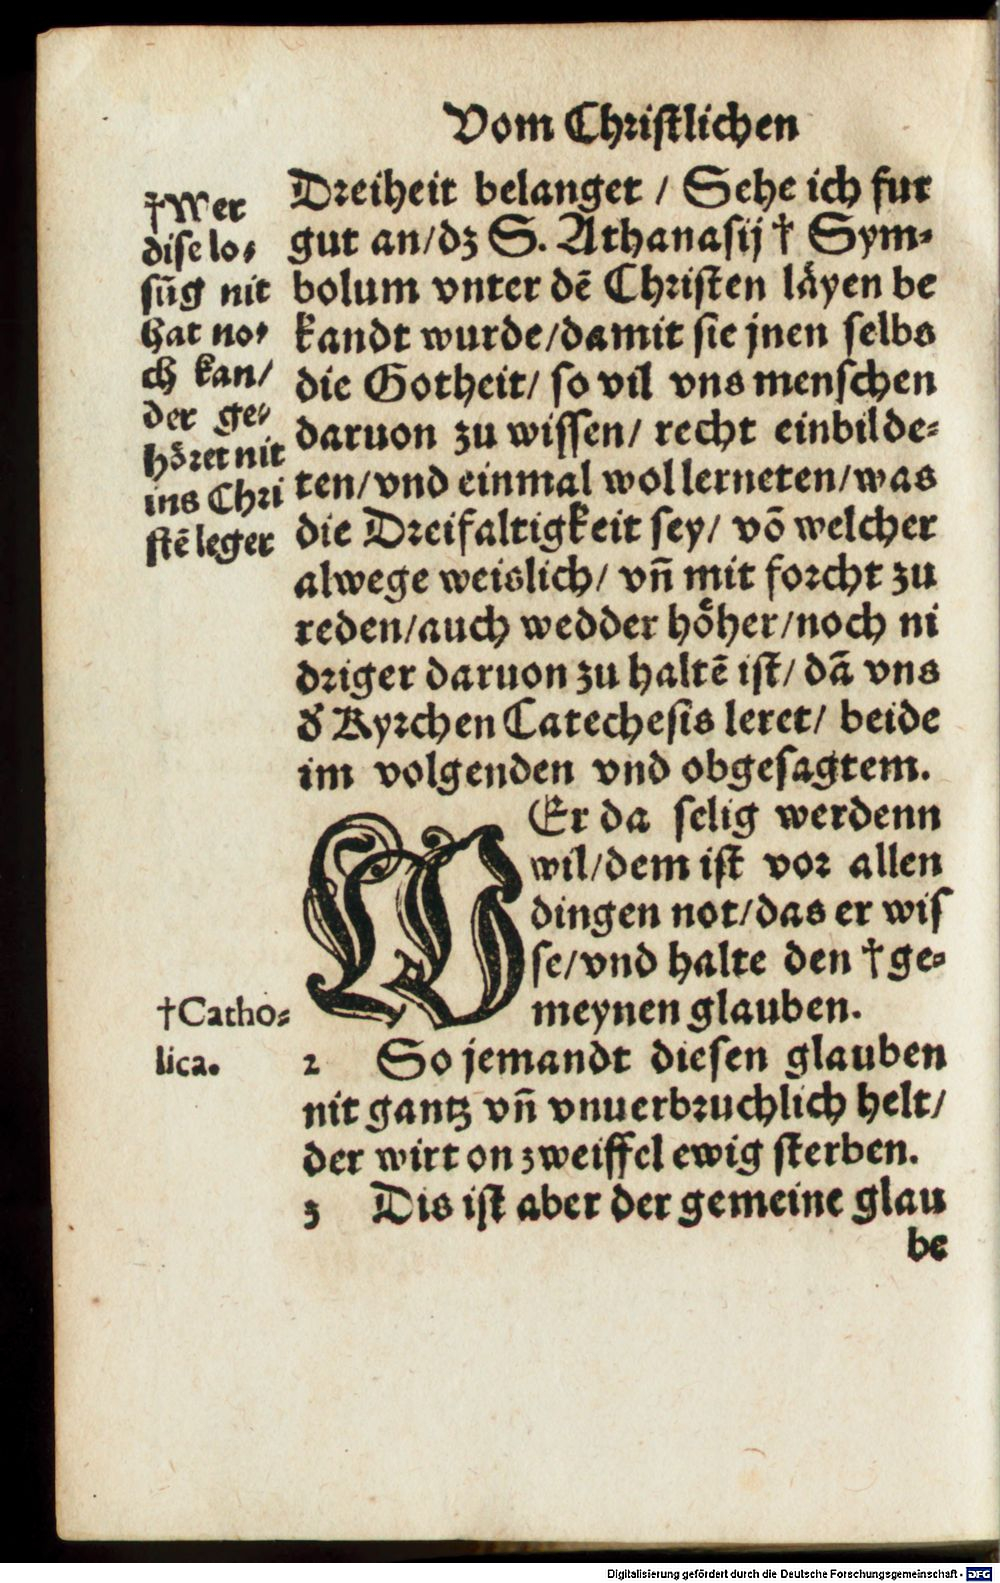 Vom Christlichen
†Wer
dise lo⸗
sūg nit
hat no⸗
ch kan/
der ge⸗
hoͤret nit
ins Chri
stē leger
Dreiheit belanget / Sehe ich fur
gut an/dz S. Athanasij † Sym⸗
bolum vnter dē Christen laͤyen be
kandt wurde/damit sie jnen selbs
die Gotheit/ so vil vns menschen
daruon zu wissen/ recht einbilde⸗
ten/vnd einmal wol lerneten/was
die Dreifaltigkeit sey/ vō welcher
alwege weislich/ vn̄ mit forcht zu
reden/auch wedder hoͤher/noch ni
driger daruon zu haltē ist/ dā vns
d' Kyrchen Catechesis leret/ beide
im volgenden vnd obgesagtem.
WEr da selig werdenn
wil/dem ist vor allen
dingen not/das er wis
se/vnd halte den † ge⸗
meynen glauben.
†Catho⸗
lica.
2 So jemandt diesen glauben
nit gantz vn̄ vnuerbruchlich helt/
der wirt on zweiffel ewig sterben.
3 Dis ist aber der gemeine glau
be
Digitalisierung gefördert durch die Deutsche Forschungsgemeinschaft - DFG